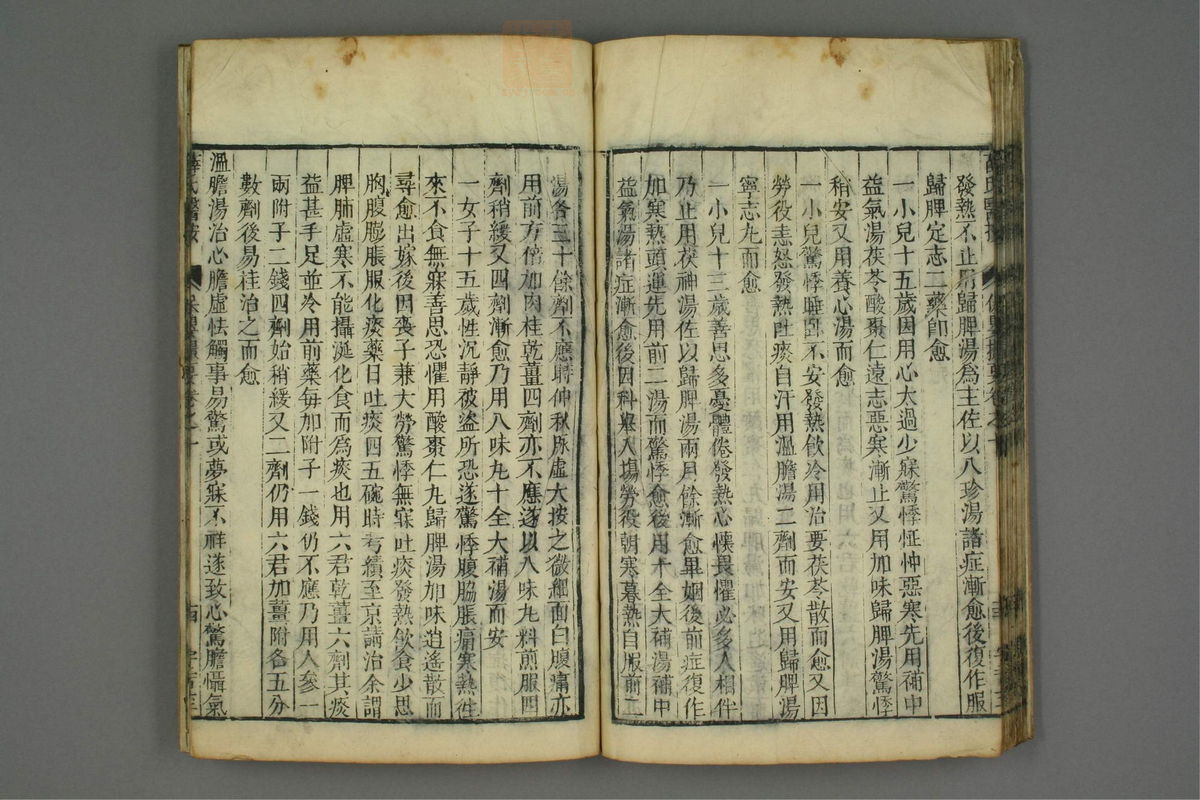 發熱不止用歸脾湯爲主佐以八珍湯諸症漸愈後復作服
歸脾定志二藥卽愈
一小兒十五歲因用心太過少寐驚悸怔忡惡寒先用補中
益氣湯茯苓酸棗仁遠志惡寒漸止又用加味歸脾湯驚悸
稍安又用養心湯而愈
一小兒驚悸睡臥不安發熱飲冷用治要茯苓散而愈又因
勞役恚怒發熱吐痰自汗用溫膽湯二劑而安又用歸脾湯
寧志丸而愈
一小兒十三歲善思多憂體倦發熱心懷畏懼必多人相伴
乃止用茯神湯佐以歸脾湯兩月餘漸愈畢姻後前症復作
加寒熱頭運先用前二湯而驚悸愈後用十全大補湯補中
益氣湯諸症漸愈後因科舉入場勞役朝寒暮熱自服前二
湯各三十餘劑不應時仲秋脉虛大按之微細面白腹痛亦
用前方倍加肉桂乾薑四劑亦不應遂以八味丸料煎服四
劑稍緩又四劑漸愈乃用八味丸十全大補湯而安
一女子十五歲性沉靜被盜所恐遂驚悸腹脇脹痛寒熱往
來不食無寐善思恐懼用酸棗仁丸歸脾湯加味逍遙散而
尋愈出嫁後因喪子兼大勞驚悸無寐吐痰發熱飲食少思
胸腹膨脹服化痰藥日吐痰四五碗時考績至京請治余謂
脾肺虛寒不能攝涎化食而爲痰也用六君乾薑六劑其痰
益甚手足並冷用前藥每加附子一錢仍不應乃用人參一
兩附子二錢四劑始稍緩又二劑仍用六君加薑附各五分
數劑後易桂治之而愈
溫膽湯治心膽虛怯觸事易驚或夢寐不祥遂致心驚膽懾氣
薛氏醫按